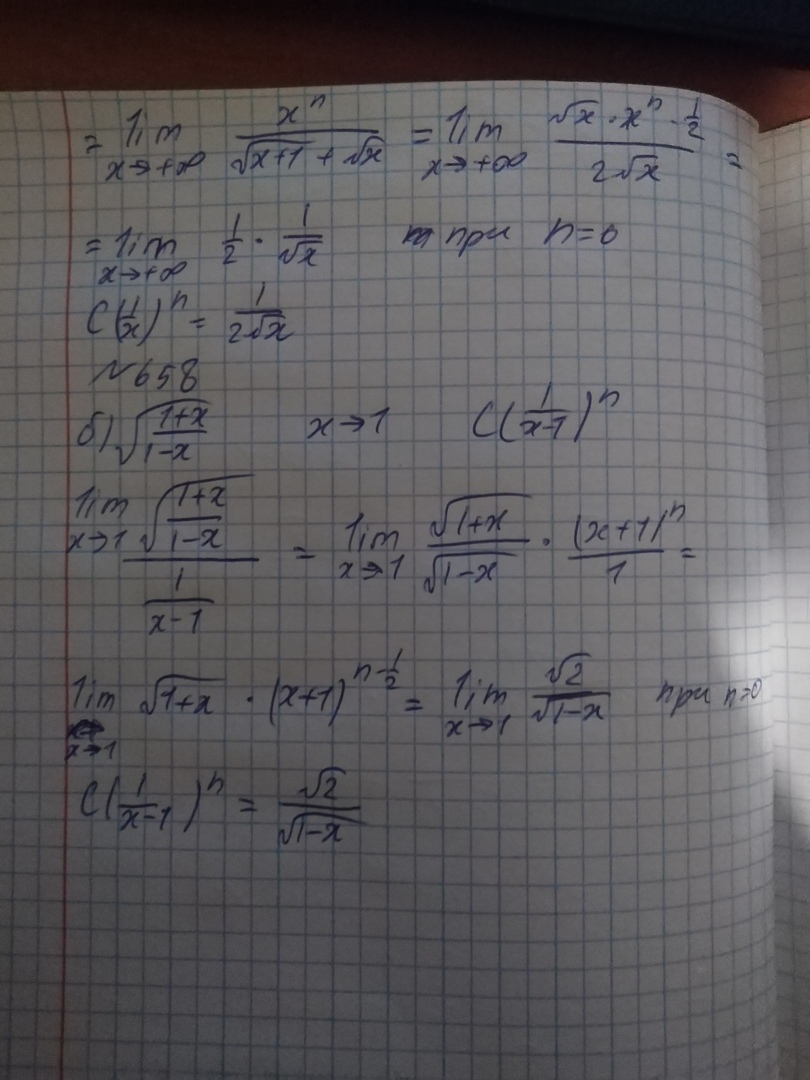 = lim x→+∞ x^n / (√(x+1) + √x) = lim x→+∞ (√x · x^(n - 1/2)) / (2√x) =
= lim x→+∞ 1/2 · 1/√x при n=0
C(1/x)^n = 1/(2√x)
№658
б) √((1+x)/(1-x)) x→1 C(1/(x-1))^n
lim x→1 √((1+x)/(1-x)) / (1/(x-1)) = lim x→1 √(1+x)/√(1-x) · (x+1)^n/1 =
lim x→1 √(1+x) · (x+1)^(n-1/2) = lim x→1 √2/√(1-x) при n=0
C(1/(x-1))^n = √2/√(1-x)